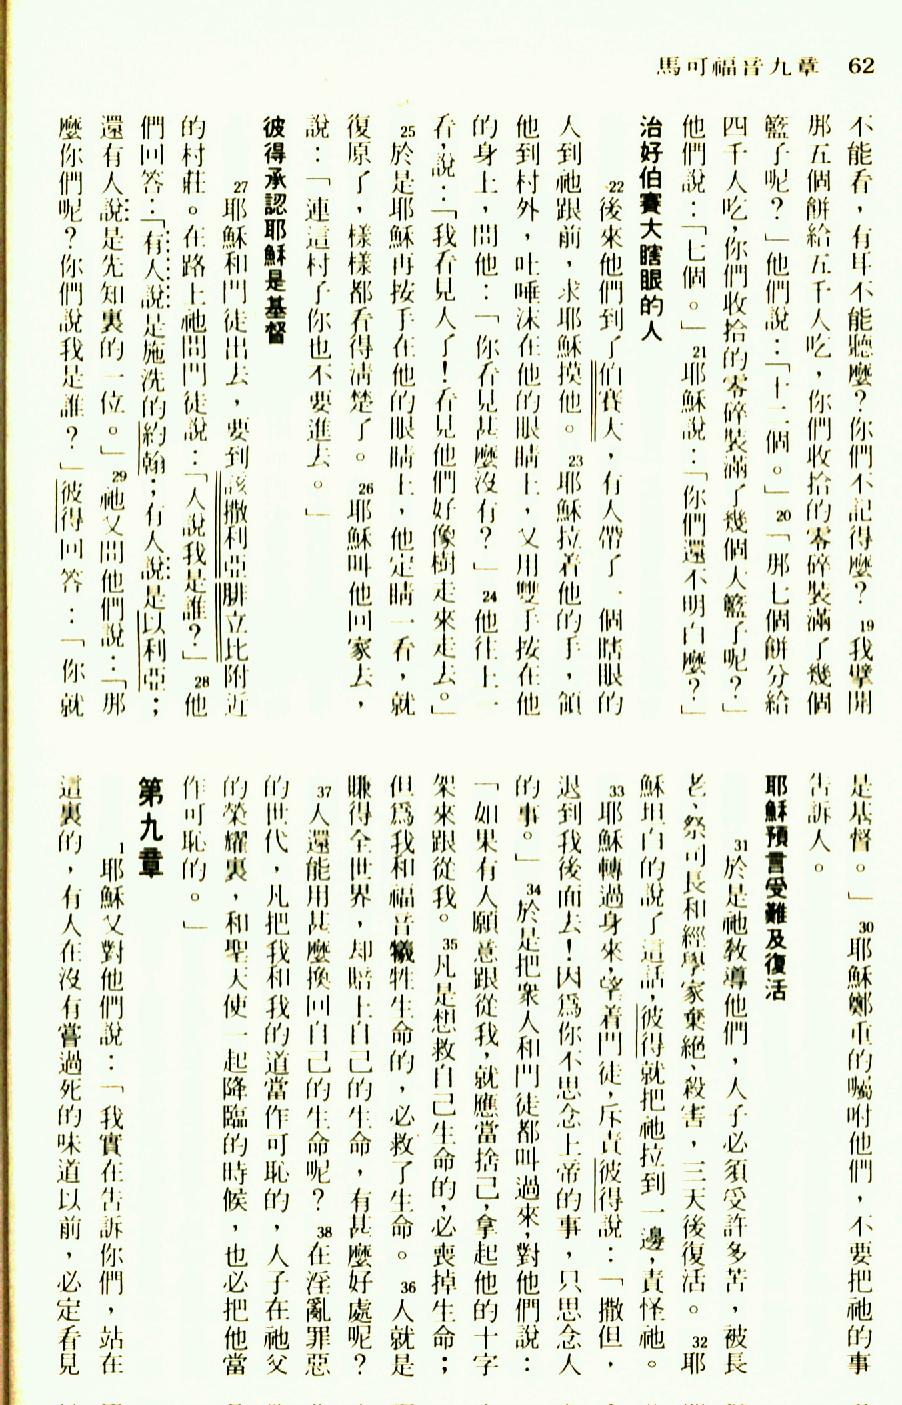 馬可福音九章　62
不能看，有耳不能聽麼？你們不記得麼？19我擘開
那五個餅給五千人吃，你們收拾的零碎裝滿了幾個
籃子呢？」他們說：「十二個。」20「那七個餅分給
四千人吃，你們收拾的零碎裝滿了幾個大籃子呢？」
他們說：「七個。」21耶穌說：「你們還不明白麼？」
治好伯賽大瞎眼的人
22後來他們到了伯賽大，有人帶了一個瞎眼的
人到祂跟前，求耶穌摸他。23耶穌拉着他的手，領
他到村外，吐唾沫在他的眼睛上，又用雙手按在他
的身上，問他：「你看見甚麼沒有？」24他往上一
看，說：「我看見人了！看見他們好像樹走來走去。」
25於是耶穌再按手在他的眼睛上，他定睛一看，就
復原了，樣樣都看得清楚了。26耶穌叫他回家去，
說：「連這村子你也不要進去。」
彼得承認耶穌是基督
27耶穌和門徒出去，要到該撒利亞腓立比附近
的村莊。在路上祂問門徒說：「人說我是誰？」28他
們回答：「有人說是施洗的約翰；有人說是以利亞；
還有人說是先知裏的一位。」29祂又問他們說：「那
麼你們呢？你們說我是誰？」彼得回答：「你就
是基督。」30耶穌鄭重的囑咐他們，不要把祂的事
告訴人。
耶穌預言受難及復活
31於是祂教導他們，人子必須受許多苦，被長
老、祭司長和經學家棄絕、殺害，三天後復活。32耶
穌坦白的說了這話，彼得就把祂拉到一邊，責怪祂。
33耶穌轉過身來，望着門徒，斥責彼得說：「撒但，
退到我後面去！因爲你不思念上帝的事，只思念人
的事。」34於是把衆人和門徒都叫過來，對他們說：
「如果有人願意跟從我，就應當捨己，拿起他的十字
架來跟從我。35凡是想救自己生命的，必喪掉生命；
但爲我和福音犧牲生命的，必救了生命。36人就是
賺得全世界，却賠上自己的生命，有甚麼好處呢？
37人還能用甚麼換回自己的生命呢？38在淫亂罪惡
的世代，凡把我和我的道當作可恥的，人子在祂父
的榮耀裏，和聖天使一起降臨的時候，也必把他當
作可恥的。」
第九章
1耶穌又對他們說：「我實在告訴你們，站在
這裏的，有人在沒有嘗過死的味道以前，必定看見